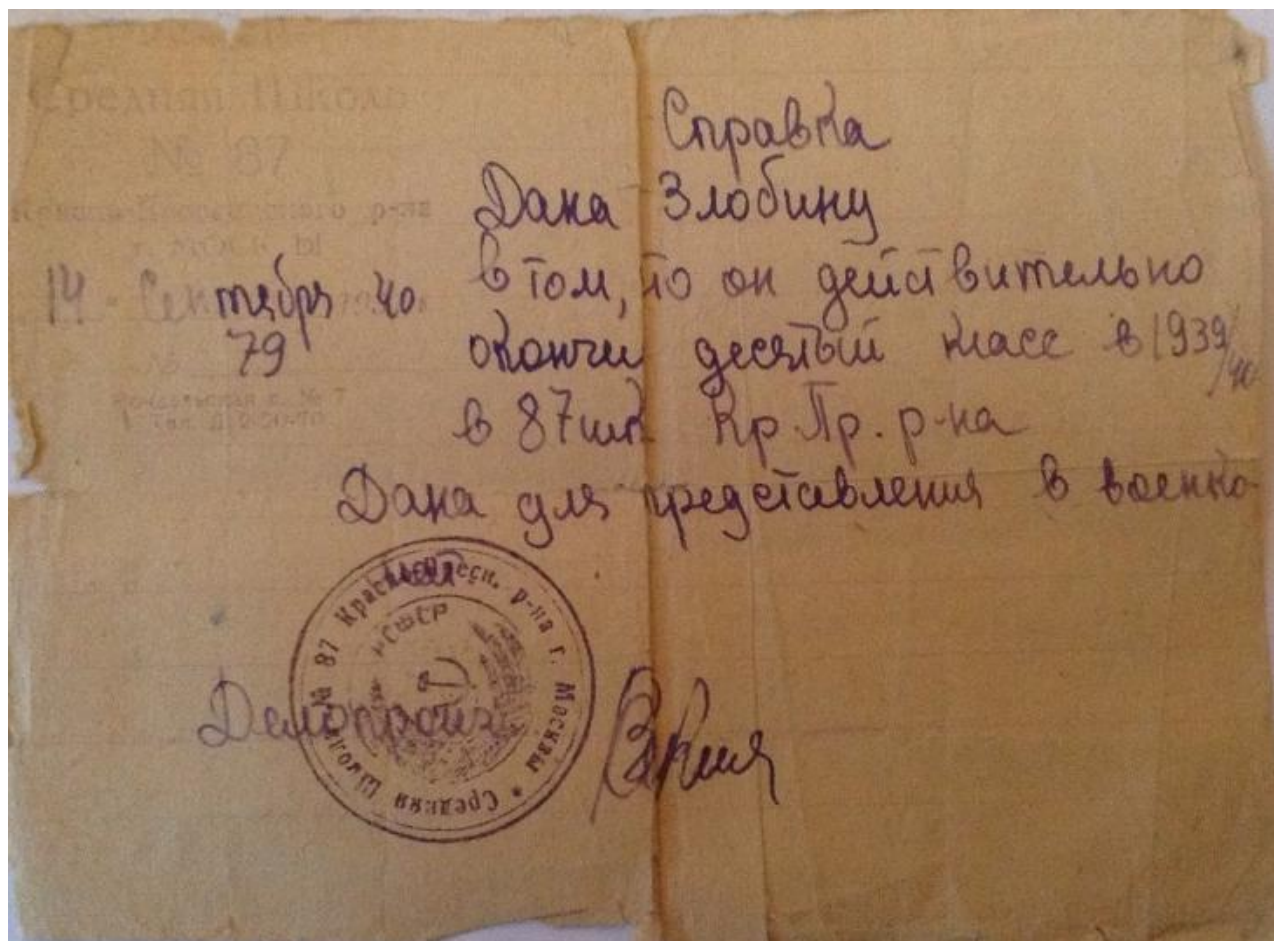 Средняя Школа
№ 87
р-на
г. МОСКВЫ
14 Сентября 1940
№ 79
Справка
Дана Злобину
в том, что он действительно
окончил десятый класс в 1939/40
в 87 шк Кр. Пр. р-на
Дана для представления в военко-
мат
Делопроиз.
Средняя Школа № 87 Красно-Пресн. р-на г. Москвы
РСФСР